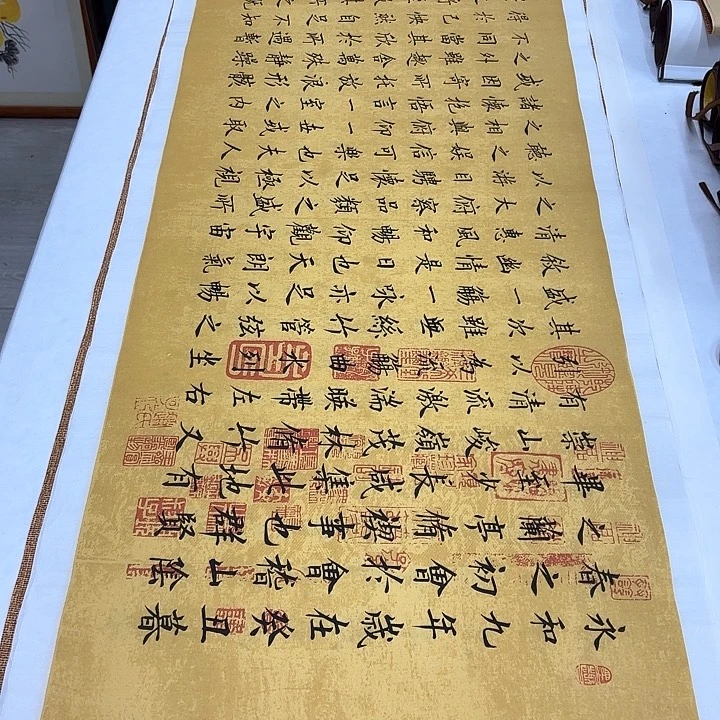 永和九年歲在癸丑暮
春之初會於會稽山陰
之蘭亭脩禊事也群賢
畢至少長咸集此地有
崇山峻領茂林脩竹又
有清流激湍暎帶左右
引以為流觴曲水列坐
其次雖無絲竹管弦之
盛一觴一詠亦足以暢
敘幽情是日也天朗氣
清惠風和暢仰觀宇宙
之大俯察品類之盛所
以遊目騁懷足以極視
聽之娛信可樂也夫人
之相與俯仰一世或取
諸懷抱悟言一室之內
或因寄所託放浪形骸
之外雖趣舍萬殊靜躁
不同當其欣於所遇暫
得於己怏然自足不知